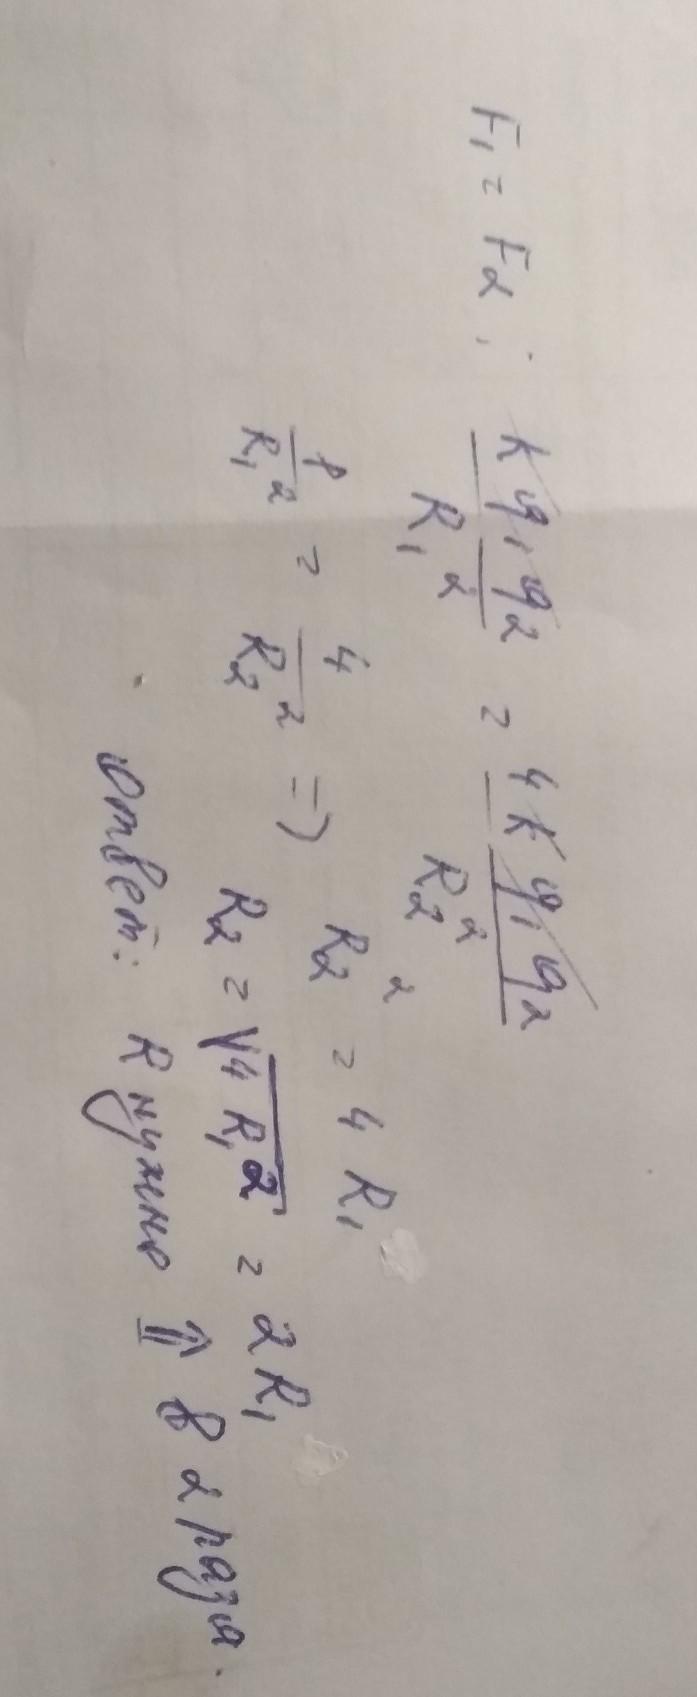 F₁ = F₂ ; K q₁ q₂ / R₁² = 4 K q₁ q₂ / R₂²
1 / R₁² = 4 / R₂² => R₂² = 4 R₁
R₂ = √4 R₁² = 2 R₁
Ответ: R нужно ⇑ в 2 раза.